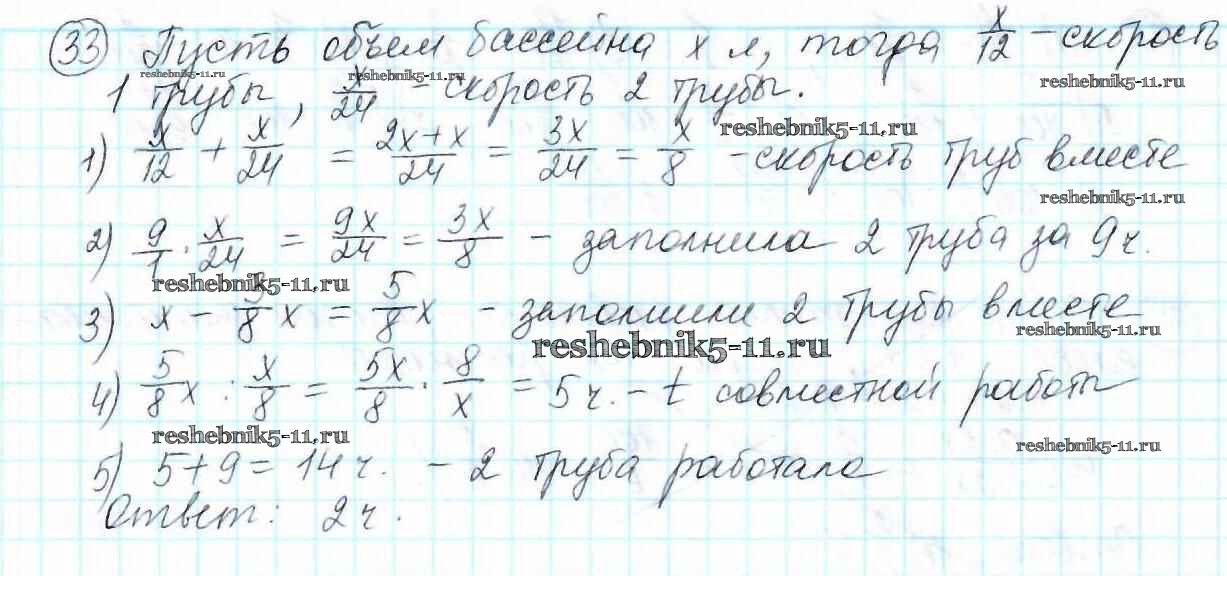 33 Пусть объем бассейна x л, тогда x/12 - скорость
1 трубы, x/24 - скорость 2 трубы.
1) x/12 + x/24 = 2x+x/24 = 3x/24 = x/8 - скорость труб вместе
2) 9/1 · x/24 = 9x/24 = 3x/8 - заполнила 2 труба за 9 ч.
3) x - 3/8 x = 5/8 x - заполнили 2 трубы вместе
4) 5/8 x : x/8 = 5x/8 · 8/x = 5 ч. - t совместной работы
5) 5+9=14 ч. - 2 труба работала
Ответ: 2 ч.
reshebnik5-11.ru
reshebnik5-11.ru
reshebnik5-11.ru
reshebnik5-11.ru
reshebnik5-11.ru
reshebnik5-11.ru
reshebnik5-11.ru
reshebnik5-11.ru
reshebnik5-11.ru
reshebnik5-11.ru